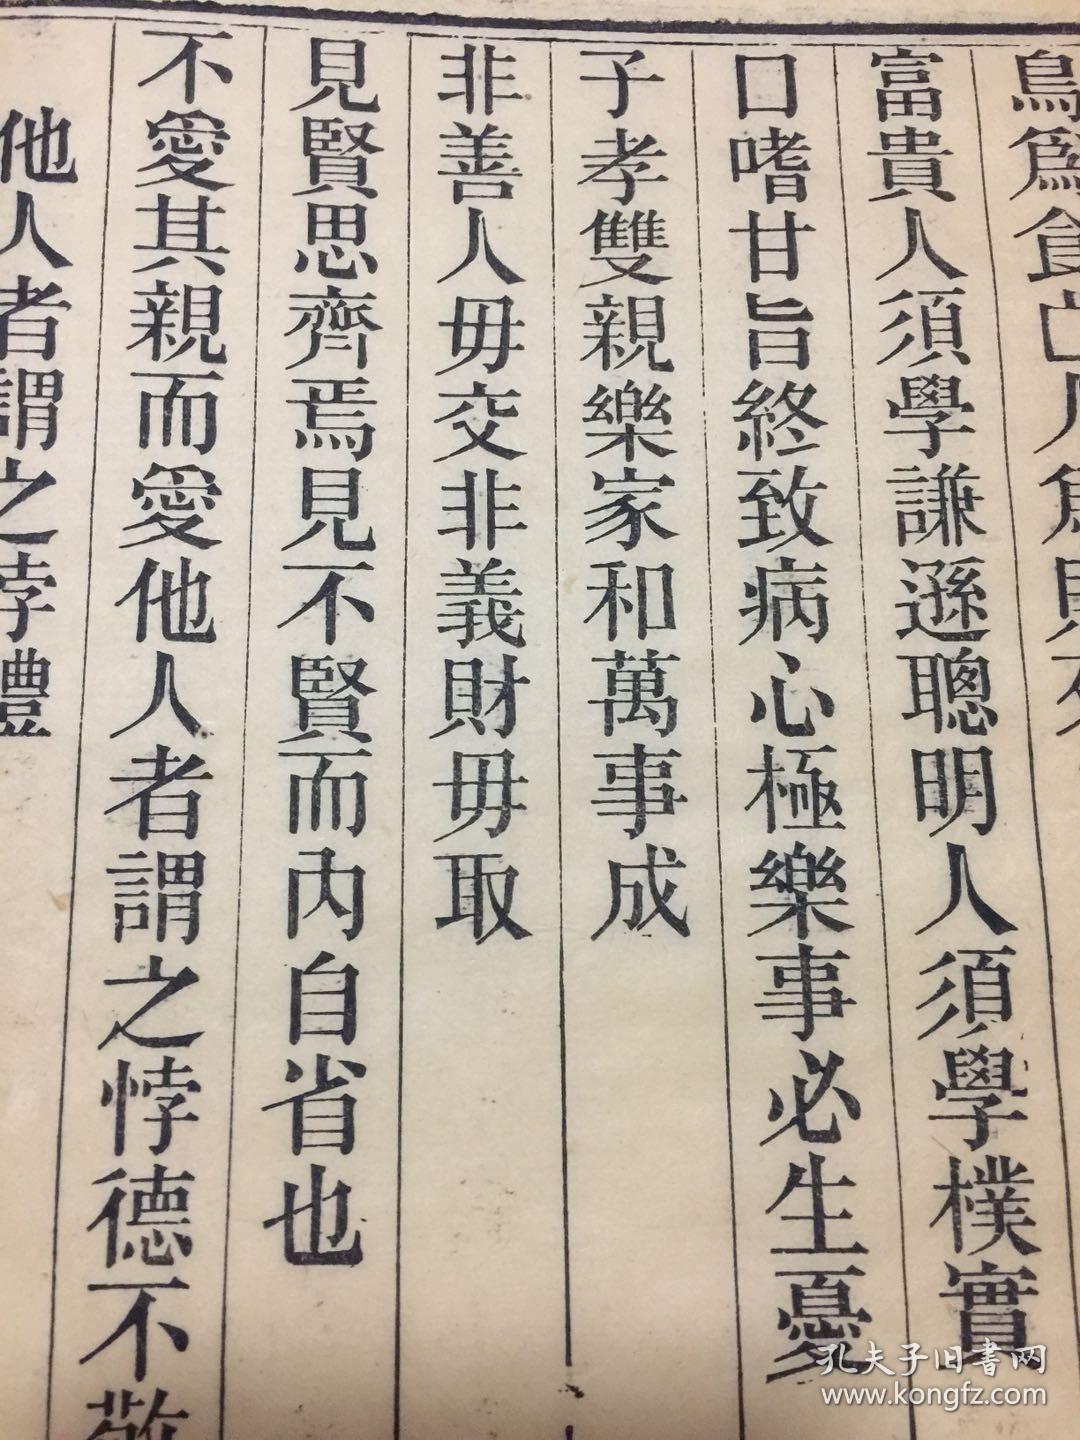 鳥爲食亡人爲財死
富貴人須學謙遜聰明人須學樸實
口嗜甘旨終致病心極樂事必生憂
子孝雙親樂家和萬事成
非善人毋交非義財毋取
見賢思齊焉見不賢而内自省也
不愛其親而愛他人者謂之悖德不敬
他人者謂之悖禮
孔夫子旧書网
www.kongfz.com